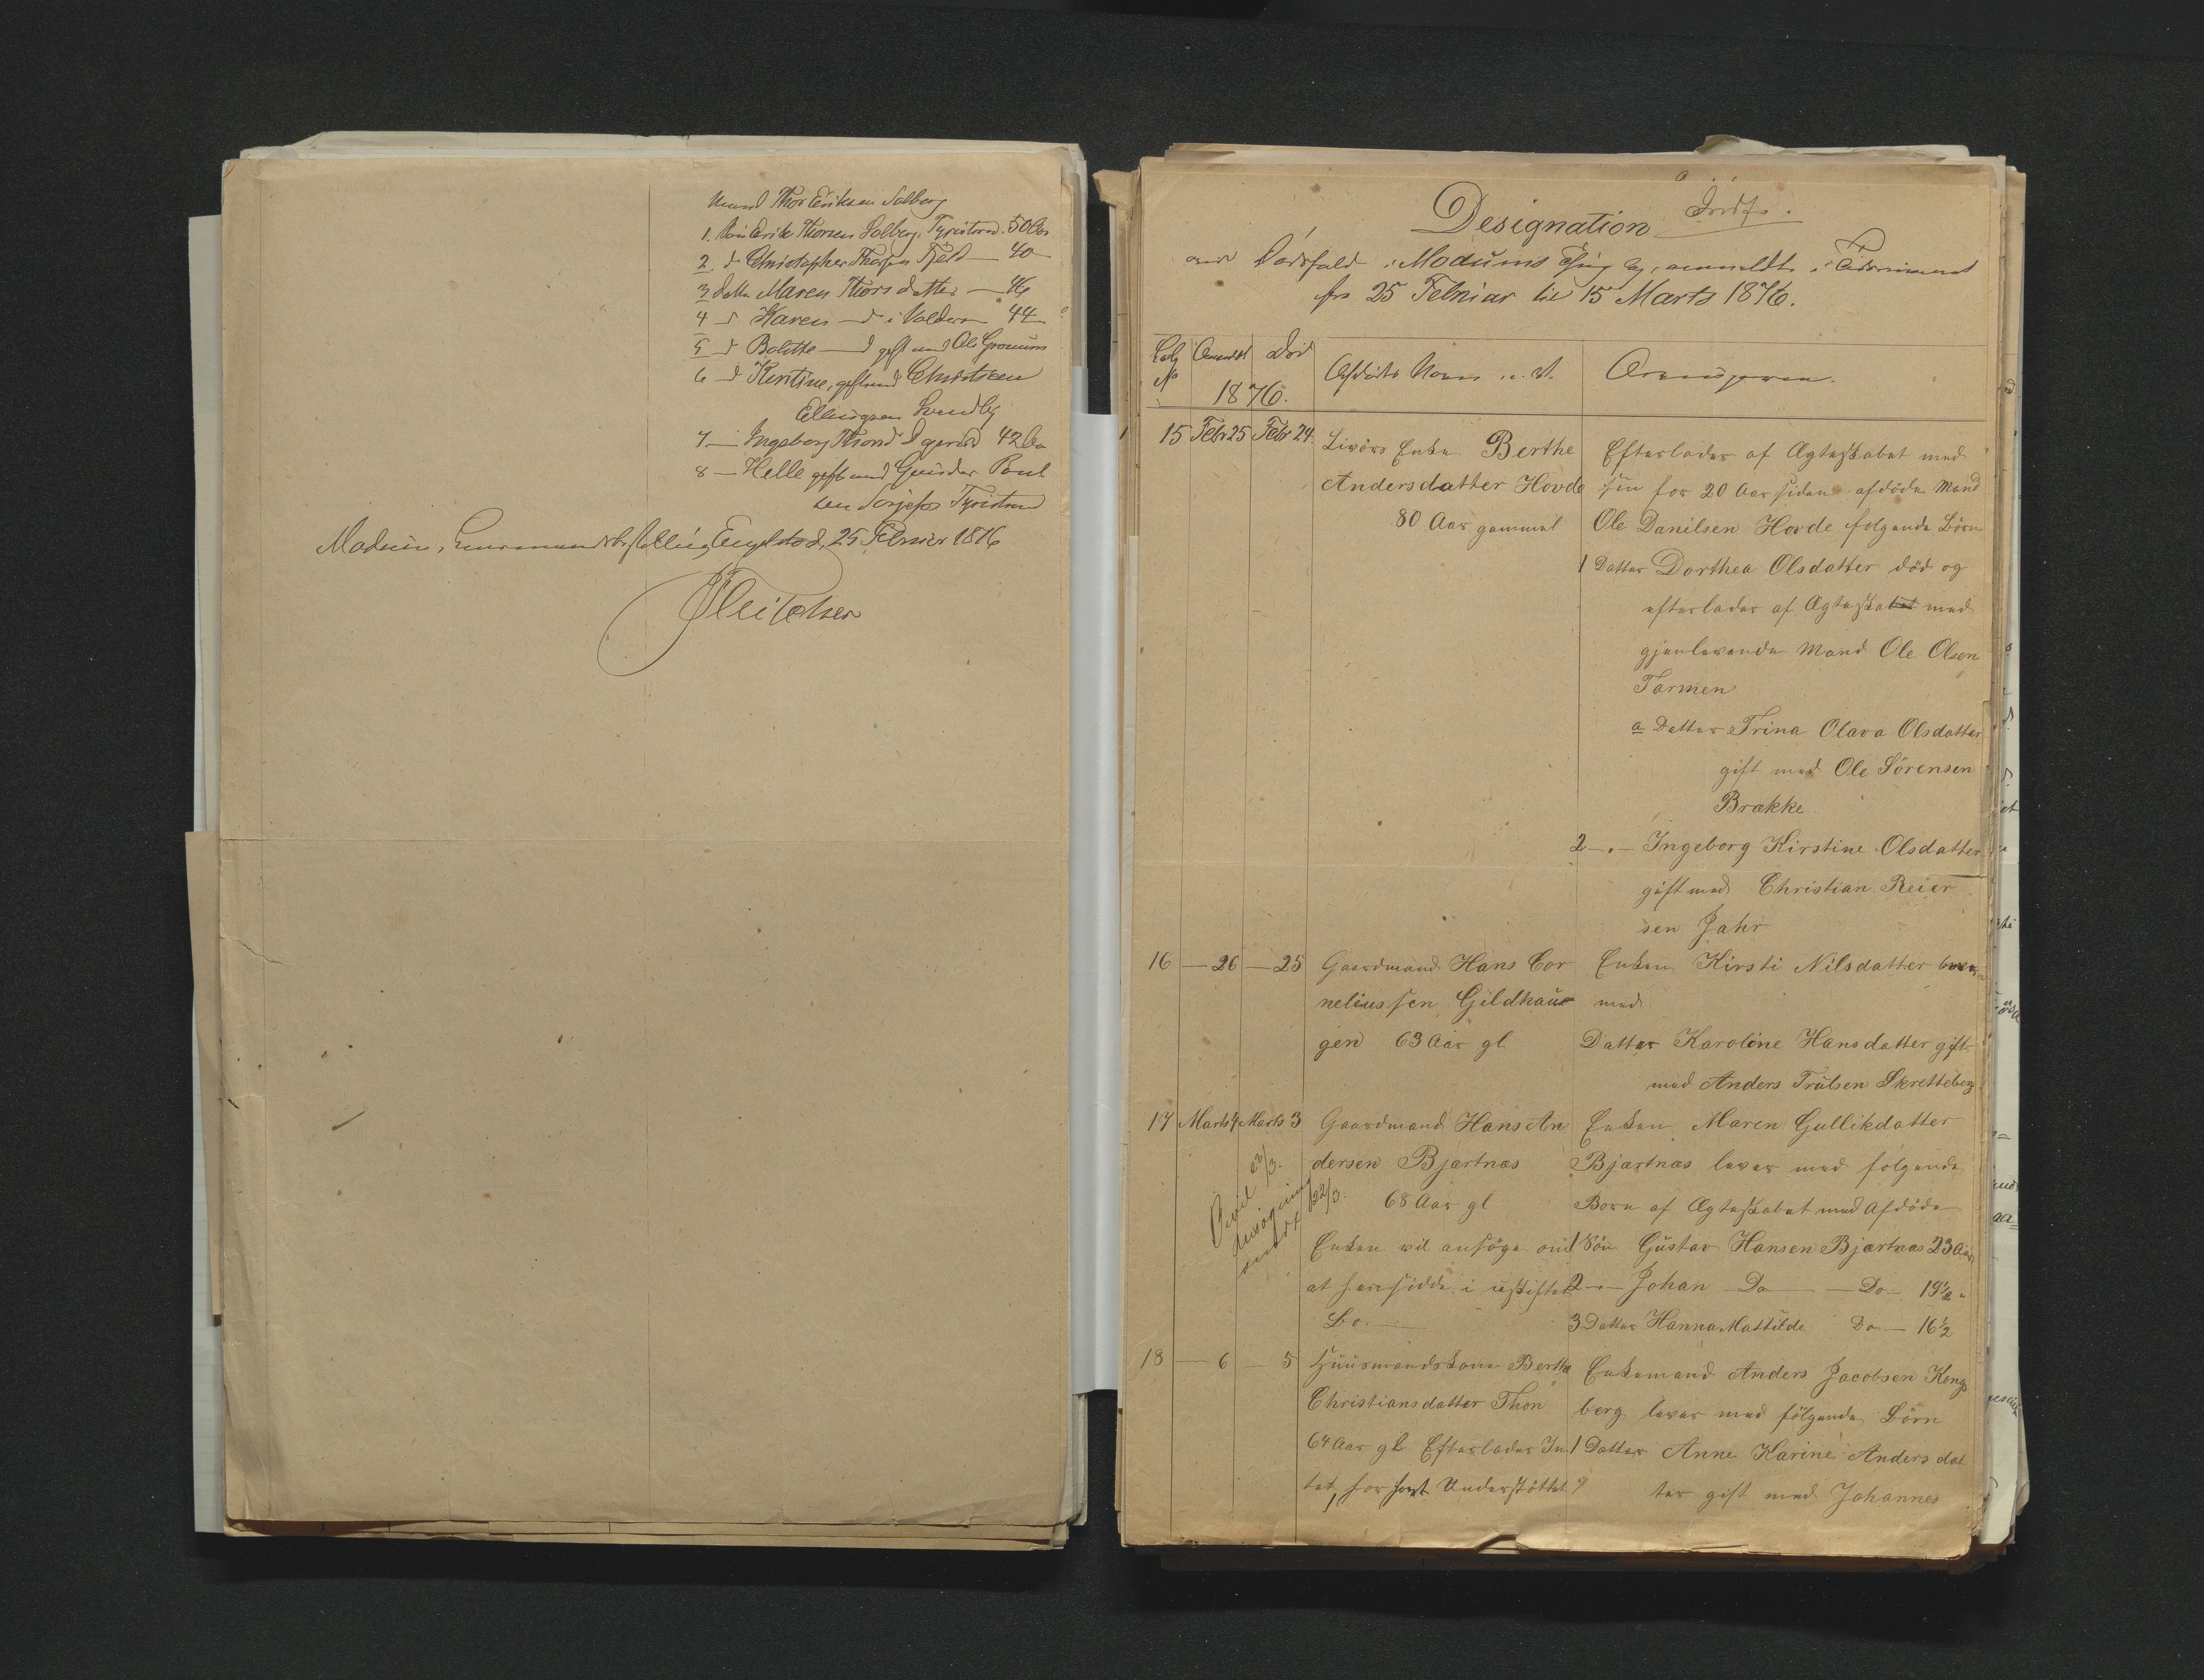 Mand Thor Eriksen Solberg
1. Søn Erik Thorsen Solberg, Tyristrand 50 Aar
2. d Christopher Thorsen Fjeld — 40 —
3 Datter Maren Thorsdatter — 46
4 d Karen — d i Valders 44
5 d Bolette — d gift med Ole
6 d Kirstine, gift med Christian
Ellingsen Lundby
7 — Ingeborg Thorsd. 42 Aar
8 — Helle gift med Gunder Poul
sen Tyristrand
Modum, Lensmandsbestilling, 25 Februar 1876

Designation
over Dødsfald i Modums Thinglag, anmeldte i Tidsrummet
fra 25 Februar til 15 Marts 1876.
Løb No Anmeldt Død Afdødes Navn o. s. v. Arvingerne.
1876.
15 Febr 25 Febr 24. Livørs Enke Berthe
Andersdatter Hovde
80 Aar gammel
Efterlader af Ægteskabet med
sin for 20 Aar siden afdøde Mand
Ole Danilsen Hovde følgende Børn
1 Datter Dorthea Olsdatter død og
efterlader af Ægteskabet med
gjenlevende Mand Ole Olsen
Tarmen
a Datter Trina Olava Olsdatter
gift med Ole Sörensen
Brække
2 — „ — Ingeborg Kirstine Olsdatter
gift med Christian Reier
sen Jahr
16 — 26 — 25 Gaardmand Hans Cor
neliussen Gildhau
gen 63 Aar gl.
Enken Kirsti Nilsdatter
med
Datter Karoline Hansdatter gift
med Anders Trulsen Skretteberg
17 Marts 4 Marts 3 Gaardmand Hans An
dersen Bjartnæs
68 Aar gl
Enken vil ansöge om
at hensidde i uskiftet
Bo.
23/3.
22/3.
Enken Maren Gullikdatter
Bjartnæs lever med følgende
Børn af Ægteskabet med Afdöde
1 Sön Gustav Hansen Bjartnæs 23 Aar
2 — „ — Johan Do — Do — 19 1/2 "
3 Datter Hanna Mathilde Do — 16 1/2
18 — 6 — 5 Huusmandskone Berthe
Christiansdatter Thon
64 Aar gl. Efterlader In
tet, Understöttet
Enkemand Anders Jacobsen Kongs
berg lever med fölgende Börn
1 Datter Anne Karine Andersdat
ter gift med Johannes